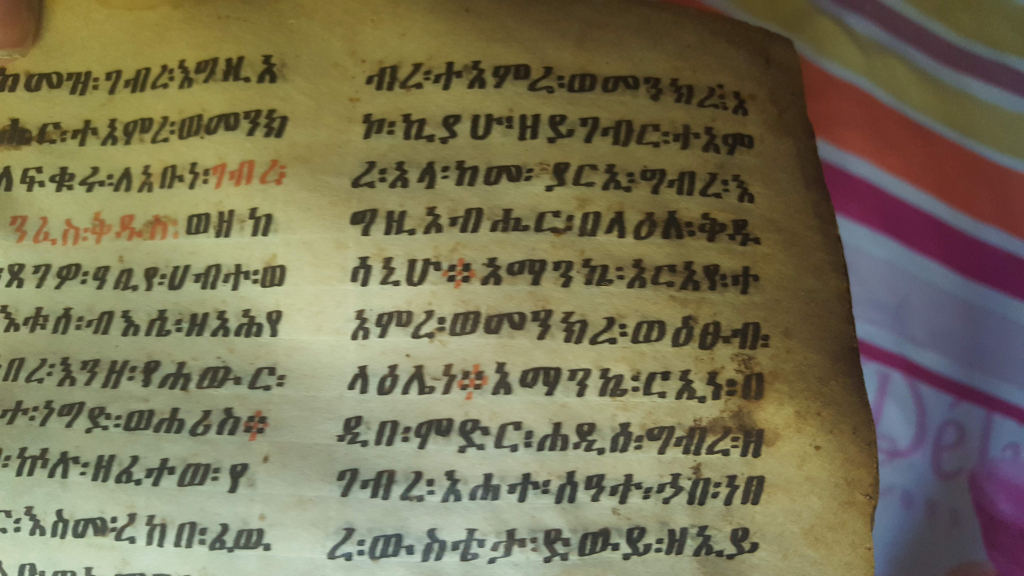 ከመዝ፡ገብረ፡እግዚአ
ሔር፡ተአምረ፡ወመንክ
ለፍቁሩ፡ለአቡነ፡ገብረ፡
ንፈስ፡ቅዱስ፡ወዘከ
ጸገዎ፡ዓቢየ፡ሀብተ፡ወ
እቁሰ፡ብእሴ፡ዘአሕየ
በረ፡እንዘ፡የሐውር፡
ተ፡ነግድ፡ወሐሪስ።
፡ኵሉ፡ዘፈተወ፡የ
ር፡እስመ፡ረከበ፡ፈዉ
ብረ፡ተአምረ፡ወመንክረ፡አ
ኮ፡ኪያሁ፡ዘይገብር፡ተአም
ረ፡አላ፡ከመ፡ያርኢ፡ግብረ፡እ
ግዚአብሔር፡በላዕለ፡ቅዱ
ሳኒሁ።አማንኬ፡አርአየ፡ተ
አምረ፡ወመንክረ፡ወዕፁብ፡
ላዕሌነ።አማንኬ፡ርኢነ፡በ
ዲበ፡ምድር፡ሐዲሰ፡ግብረ፡ዘ
ገብረ፡አሐተ፡ሰዓተ፡ኀበ፡ነበ
ረ፡ውስቴታ፡ድውይ፡ዘኢይ